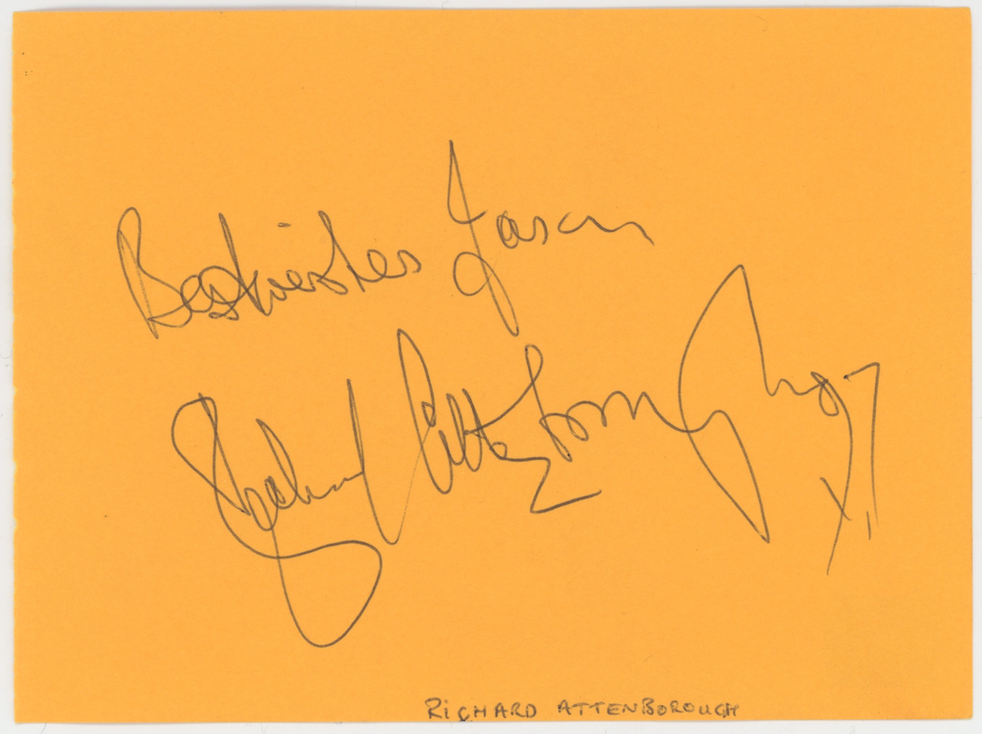 Best wishes Jason
Richard Attenborough
RICHARD ATTENBOROUGH